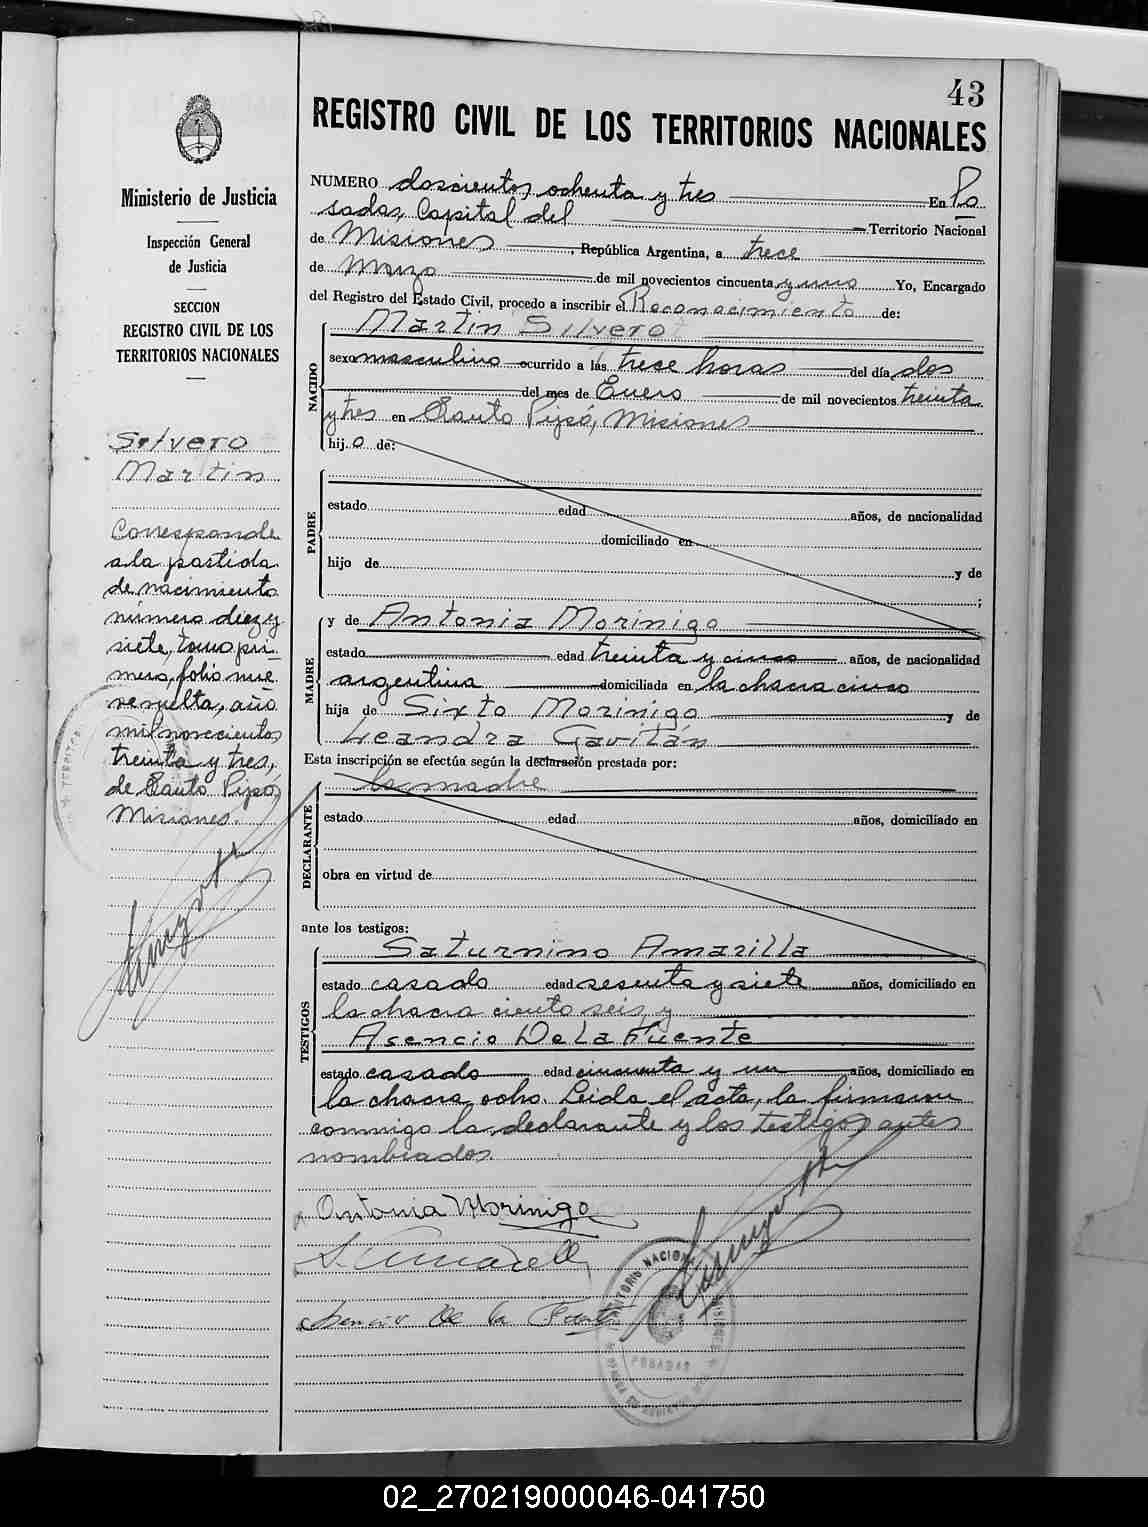 43
REGISTRO CIVIL DE LOS TERRITORIOS NACIONALES
Ministerio de Justicia
Inspección General
de Justicia
SECCION
REGISTRO CIVIL DE LOS
TERRITORIOS NACIONALES
Silvero
Martin
Corresponde
a la partida
de nacimiento
número diez y
siete, tomo pri-
mero, folio nue
ve vuelta, año
mil novecientos
treinta y tres,
de Santo Pipó,
Misiones.
NUMERO doscientos ochenta y tres En Po
sadas, Capital del Territorio Nacional
de Misiones, República Argentina, a trece
de Marzo de mil novecientos cincuenta y uno Yo, Encargado
del Registro del Estado Civil, procedo a inscribir el Reconocimiento de:
Martin Silvero
NACIDO
sexo masculino ocurrido a las trece horas del día dos
del mes de Enero de mil novecientos treinta
y tres en Santo Pipó, Misiones
hij o de:
PADRE
estado edad años, de nacionalidad
domiciliado en
hijo de y de
;
MADRE
y de Antonia Morinigo
estado edad treinta y cinco años, de nacionalidad
argentina domiciliada en la chacra cinco
hija de Sixto Morinigo y de
Leandra Gavilán
Esta inscripción se efectúa según la declaración prestada por:
la madre
DECLARANTE
estado edad años, domiciliado en
obra en virtud de
ante los testigos:
Saturnino Amarilla
TESTIGOS
estado casado edad sesenta y siete años, domiciliado en
la chacra ciento seis, y
Asencio De La Fuente
estado casado edad cincuenta y un años, domiciliado en
la chacra ocho. Leida el acta, la firmaron
conmigo la declarante y los testigos antes
nombrados.
Antonia Morinigo
S. Amarilla
Asencio De la Fuente
TERRITORIO NACIONAL MISIONES
POSADAS
02_270219000046-041750